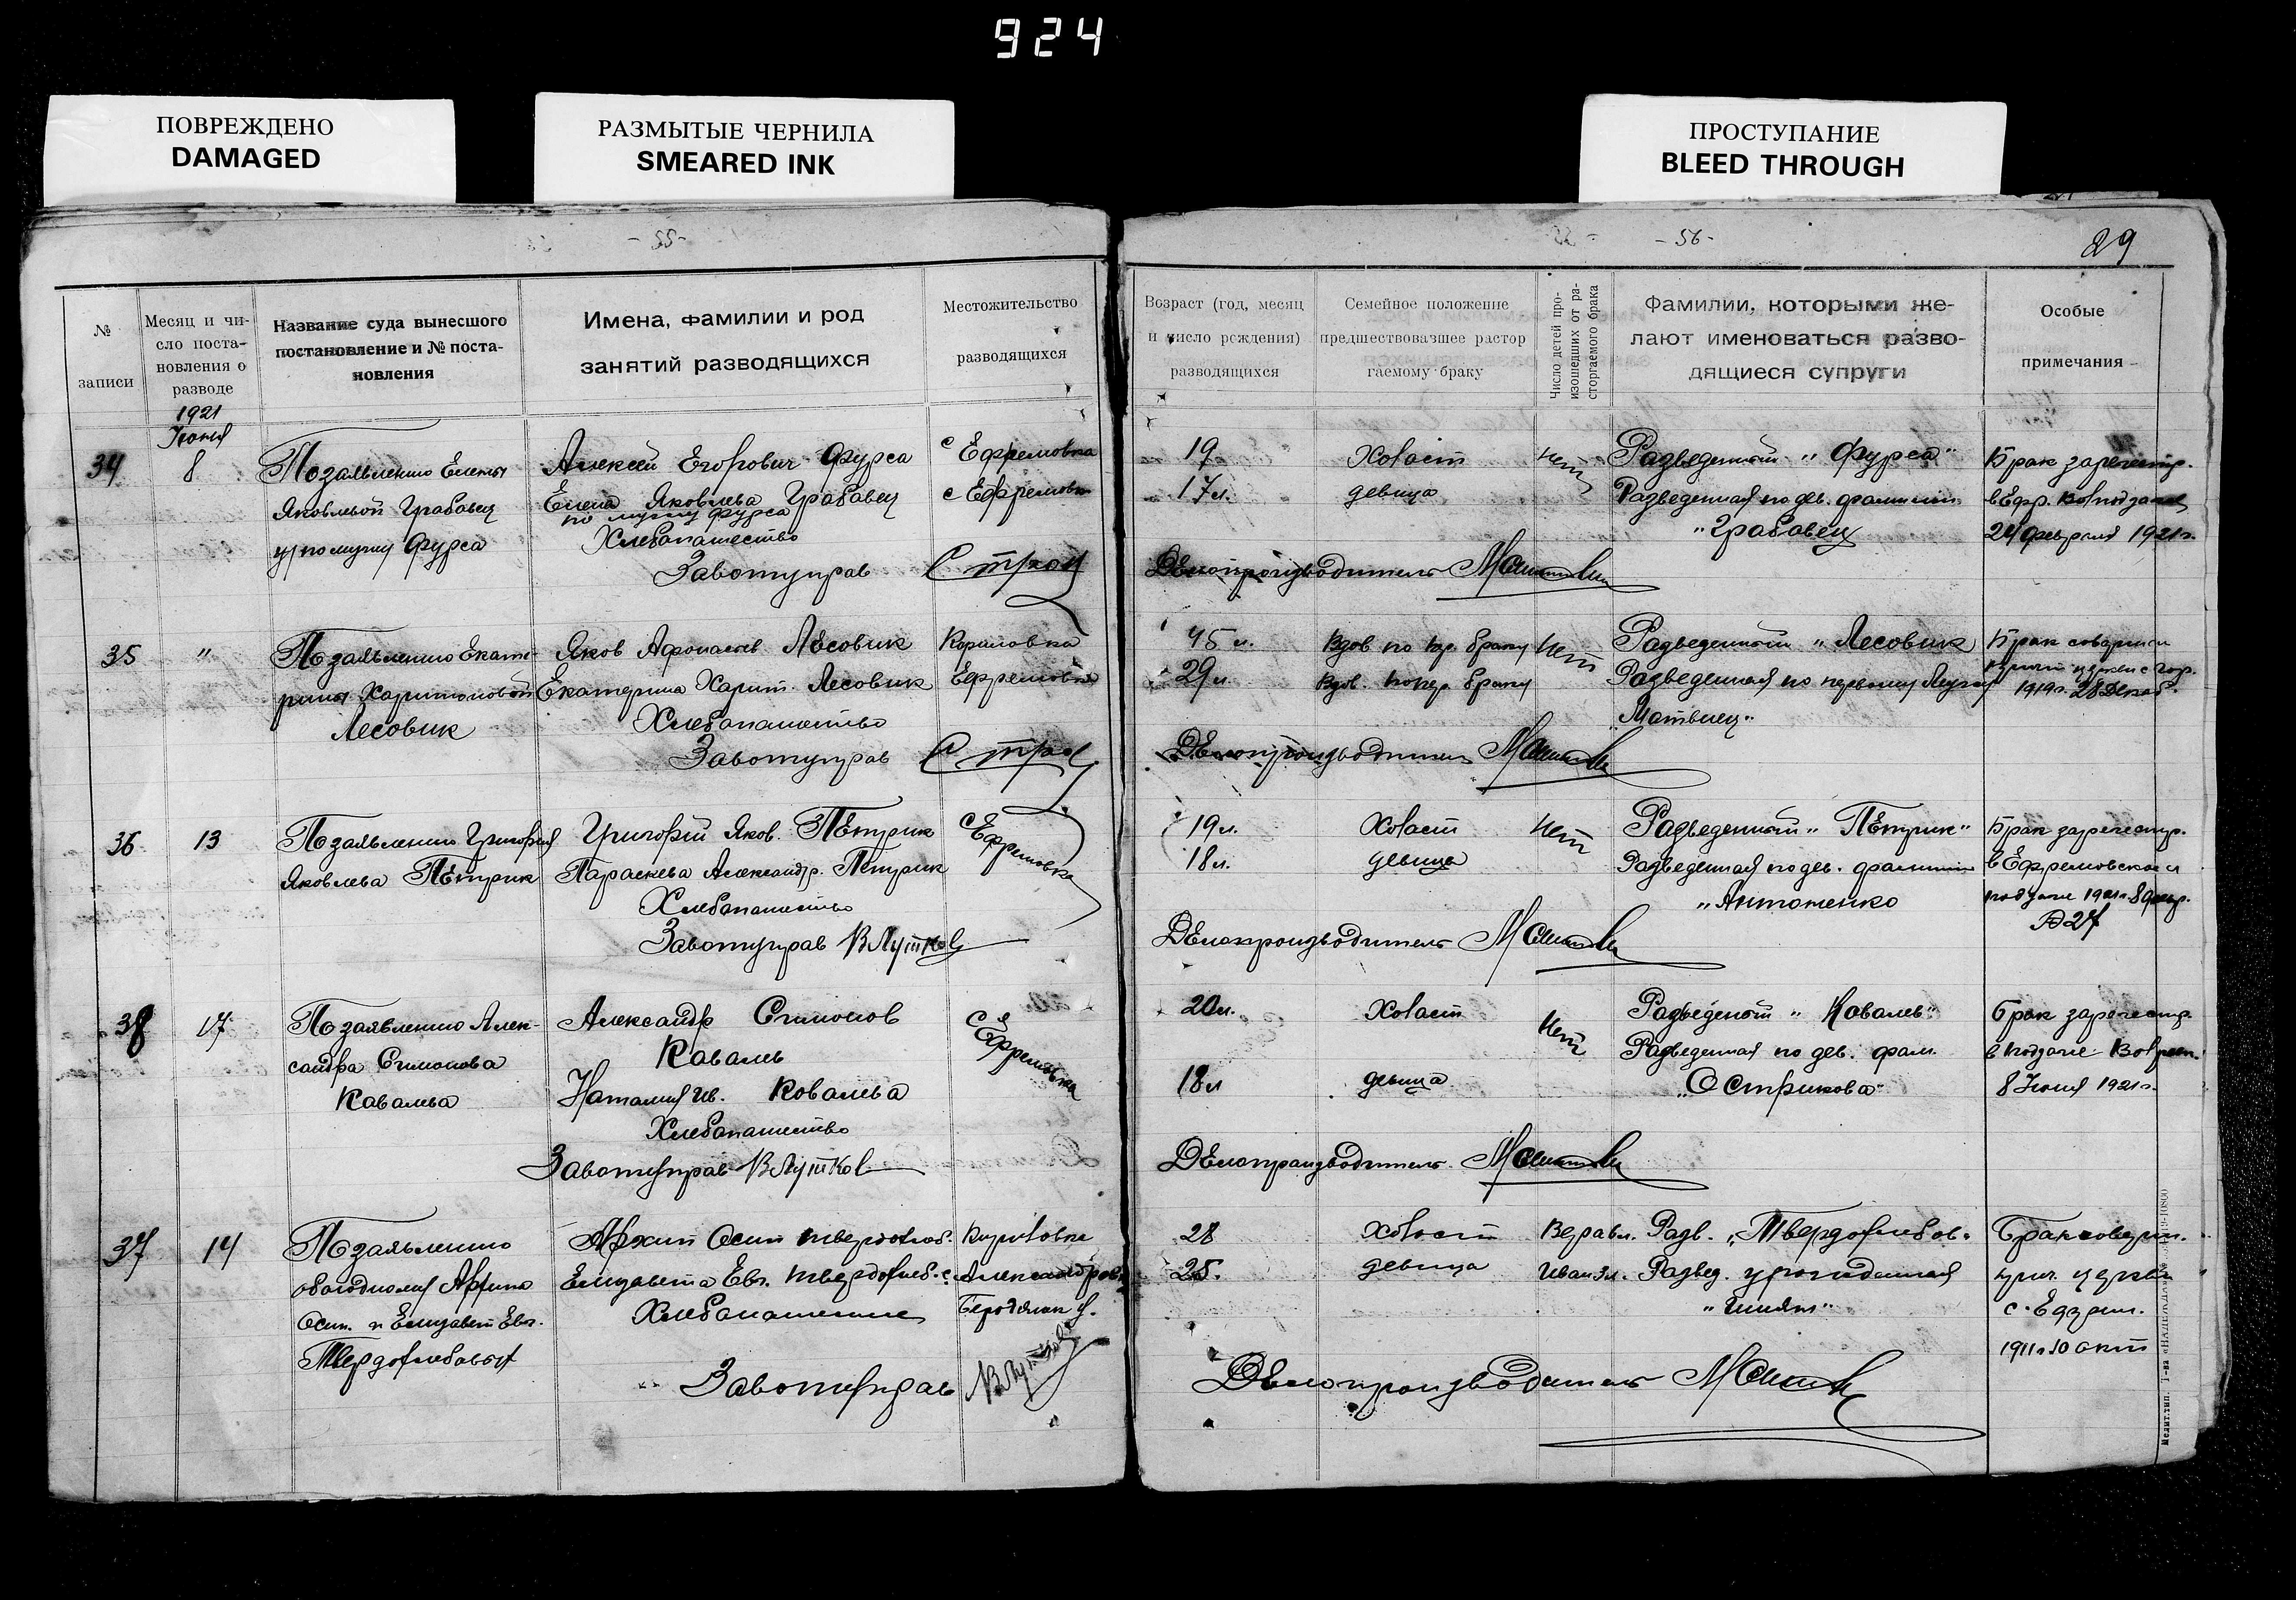 924
ПОВРЕЖДЕНО
DAMAGED
РАЗМЫТЫЕ ЧЕРНИЛА
SMEARED INK
ПРОСТУПАНИЕ
BLEED THROUGH
- 55-
- 56 -
29
№
записи
Месяц и чи-
сло поста-
новления о
разводе
Название суда вынесшого
постановление и № поста-
новления
Имена, фамилии и род
занятий разводящихся
Местожительство
разводящихся
Возраст (год, месяц
и число рождения)
разводящихся
Семейное положение
предшествовавшее растор
гаемому браку
Число детей про-
изошедших от ра-
сторгаемого брака
Фамилии, которыми же-
лают именоваться разво-
дящиеся супруги
Особые
примечания
1921
Июня
34
8
По заявлению Елены
Яковлевой Грабавец
по мужу Фурса
Алексей Егорович Фурса
Елена Яковлева Грабавец
по мужу Фурса
Хлебопашество
Завотуправ
с Ефремовка
с Ефремовк
19
17 л.
Холост
девица
нет
Разведенный „Фурса"
Разведенная по дев. фамилии
„Грабавец
Брак зарегестр.
в Ефр.
24 февраля 1921 г.
Делопроизводитель
35
"
По заявлению Екате-
рины Харитоновой
Лесовик
Яков Афонасьев Лесовик
Екатерина Харит. Лесовик
Хлебопашество
Завотуправ
Кориловка
Ефремовка
45 л.
29 л
Вдов по пер. браку
Вдов. по пер. браку
Нет
Разведенный „Лесовик
Разведенная по первому мужу
Матвиец"
Брак совершен
1919 г. 28 Декаб.
Делопроизводитель
36
13
По заявлению Григория
Яковлева Петрик
Григорий Яков. Петрик
Параскева Александр. Петрик
Хлебопашество
Завотуправ В Лутков
с Ефремовка
19 л.
18 л.
Холост
девица
Нет
Разведенный „Петрик"
Разведенная по дев. фамилии
„Антоненко
Брак зарегестр.
в Ефремовском
1921 г. 8 февр.
№ 27
Делопроизводитель
38
17
По заявлению Алек-
сандра Симонова
Коваля
Александр Симонов
Коваль
Наталия Ив. Ковалева
Хлебопашество
Завотуправ В Лутков
с Ефремовка
20 л.
18 л
Холост
девица
Нет
Разведеный „Коваль"
Разведенная по дев. фам.
„Острикова"
Брак зарегестр.
в подзаге
8 Июня 1921 г.
Делопроизводитель
37
14
По заявлению
Архипа
Осип. и Елизавет Евг.
Твердохлебовых
Архип Осип Твердохлеб.
Елизавета Евг. Твердохлеб.
Хлебопашение
Завотуправ
Кириловка
с. Александровк
28
25.
Холост
девица
Вера 6 л.
Иван 3 л.
Разв. „Твердохлебов"
Развед. урожденная
Брак соверш.
церкви
1911 г 10 окт
Делопроизводитель